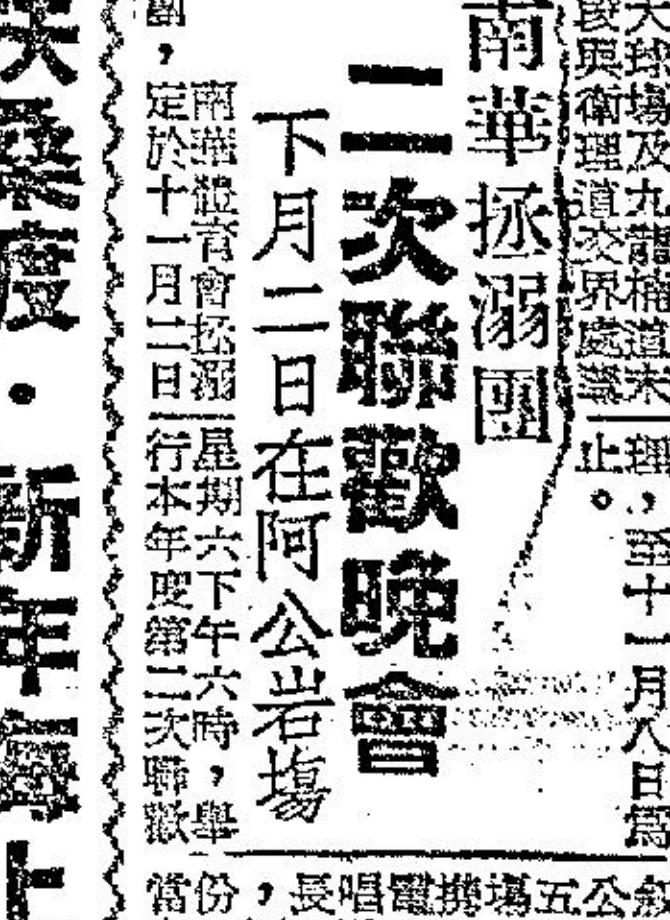 大球場及九龍補道末
段與衛理道交界處為
理,至十一月八日為
止。
南華拯溺團
二次聯歡晚會
下月二日在阿公岩塲
南華體育會拯溺
團,定於十一月二日
星期六下午六時,舉
行本年度第二次聯歡
扶桑度·新年海上
公五塲撓電唱長,份當